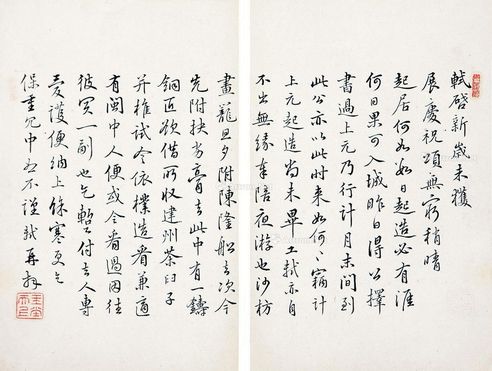 軾啓新歲未獲
展慶祝頌無窮稍晴
起居何如數日起造必有涯
何日果可入城昨日得公擇
書過上元乃行計月末間到
此公亦以此時來如何〻竊計
上元起造尚未畢工軾亦自
不出無緣奉陪夜游也沙枋
畫籠旦夕附陳隆船去次今
先附扶劣膏去此中有一鑄
銅匠欲借所收建州茶臼子
并椎試令依樣造看兼適
有閩中人便或令看過因往
彼買一副也乞暫付去人專
愛護便納上餘寒更乞
保重冗中恕不謹軾再拜